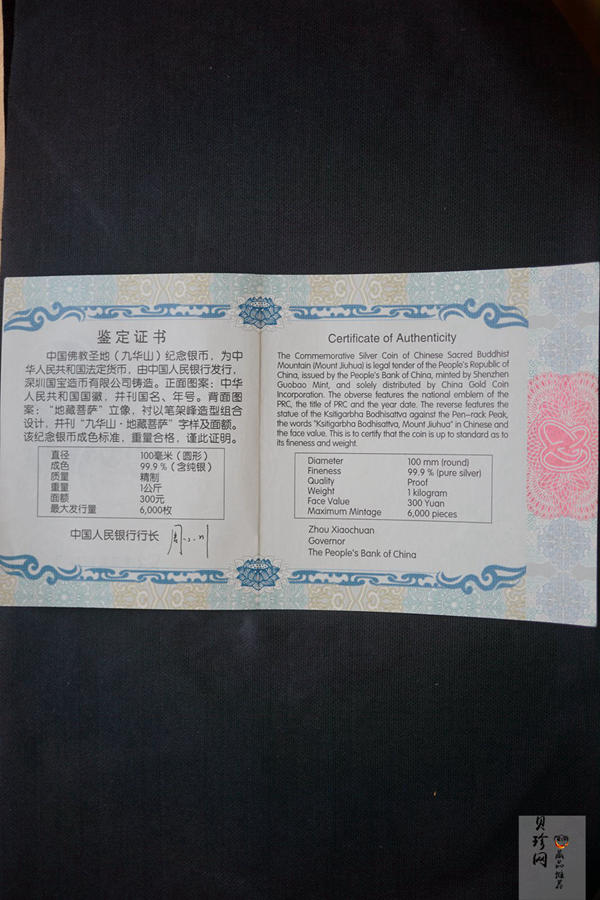 鉴定证书
中国佛教圣地（九华山）纪念银币，为中
华人民共和国法定货币，由中国人民银行发行，
深圳国宝造币有限公司铸造。正面图案：中华
人民共和国国徽，并刊国名、年号。背面图
案：“地藏菩萨”立像，衬以笔架峰造型组合
设计，并刊“九华山·地藏菩萨”字样及面额。
该纪念银币成色标准，重量合格，谨此证明。
直径 100毫米（圆形）
成色 99.9％（含纯银）
质量 精制
重量 1公斤
面额 300元
最大发行量 6,000枚
中国人民银行行长
Certificate of Authenticity
The Commemorative Silver Coin of Chinese Sacred Buddhist
Mountain (Mount Jiuhua) is legal tender of the People's Republic of
China, issued by the People's Bank of China, minted by Shenzhen
Guobao Mint, and solely distributed by China Gold Coin
Incorporation. The obverse features the national emblem of the
PRC, the title of PRC and the year date. The reverse features the
statue of the Ksitigarbha Bodhisattva against the Pen-rack Peak,
the words "Ksitigarbha Bodhisattva, Mount Jiuhua" in Chinese and
the face value. This is to certify that the coin is up to standard as to
its fineness and weight.
Diameter 100 mm (round)
Fineness 99.9 % (pure silver)
Quality Proof
Weight 1 kilogram
Face Value 300 Yuan
Maximum Mintage 6,000 pieces
Zhou Xiaochuan
Governor
The People's Bank of China
贝珍网
藏品推荐